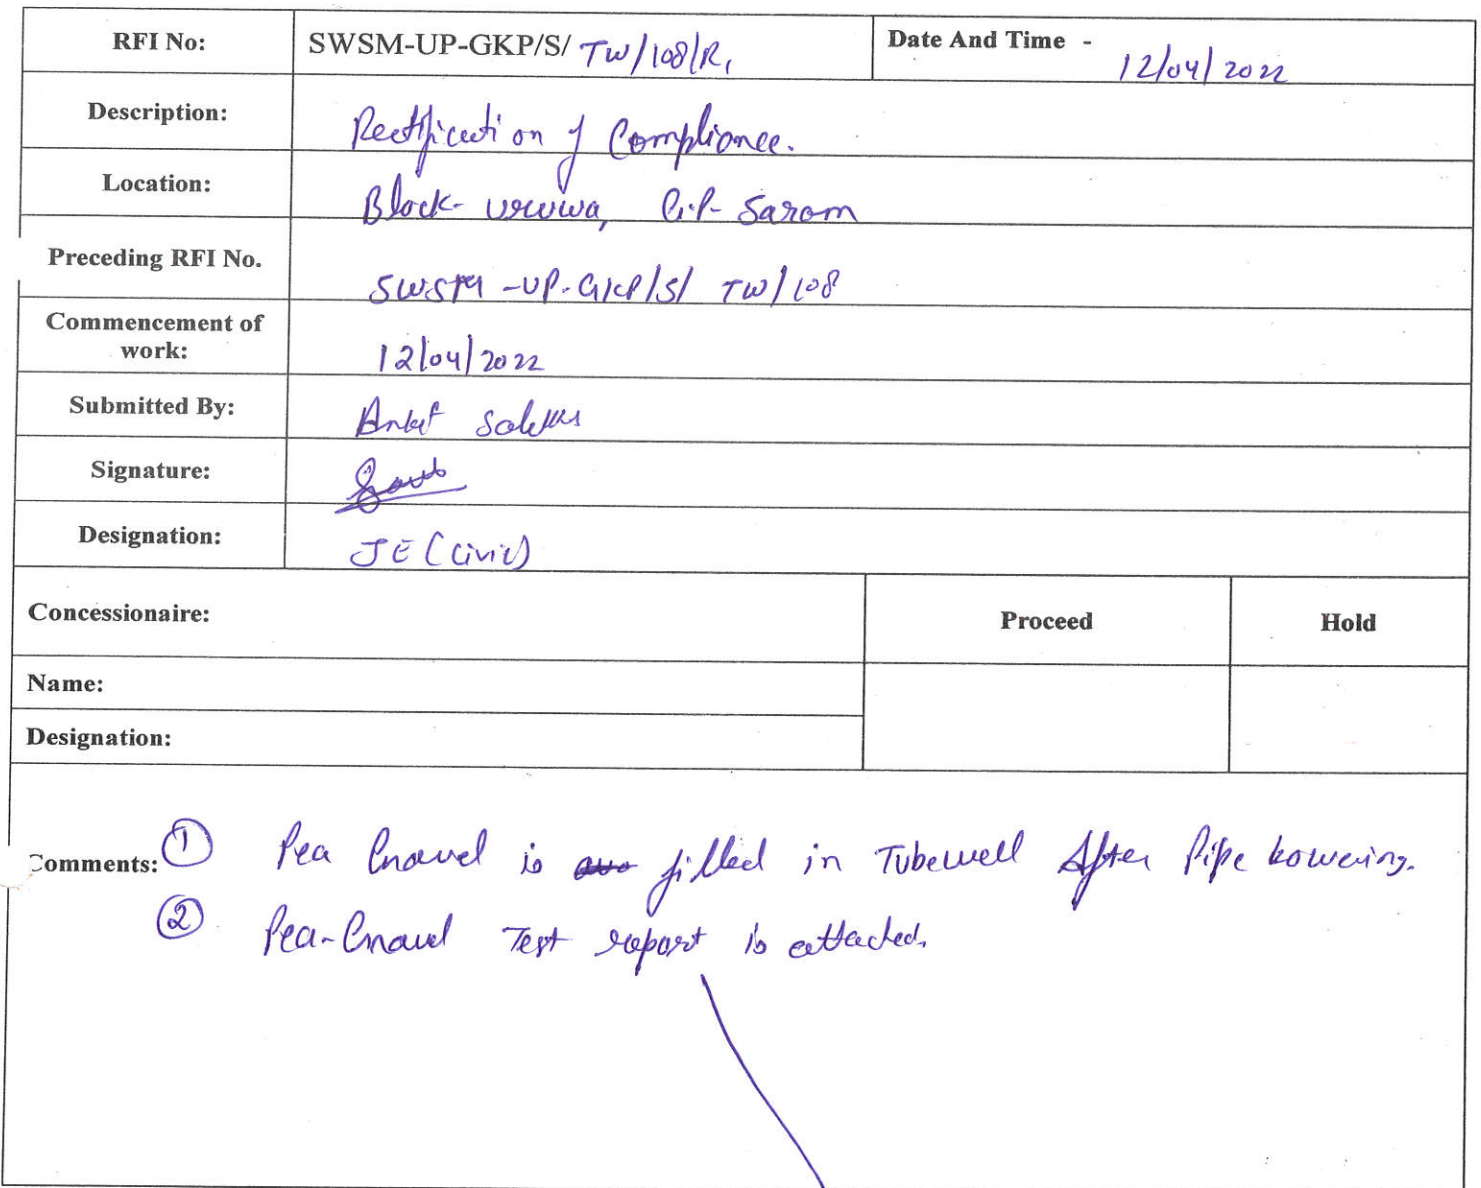 RFI No: SWSM-UP-GKP/S/ TW/108/R1 Date And Time - 12/04/2022
Description: Rectification of Compliance.
Location: Block- Uruwa, G.P- Sarom
Preceding RFI No. SWSM-UP-GKP/S/ TW/108
Commencement of
work: 12/04/2022
Submitted By: Ankit
Signature:
Designation: JE (Civil)
Concessionaire: Proceed Hold
Name:
Designation:
Comments: ① Pea Gravel is filled in Tubewell After Pipe Lowering.
② Pea-Gravel Test report is attached.